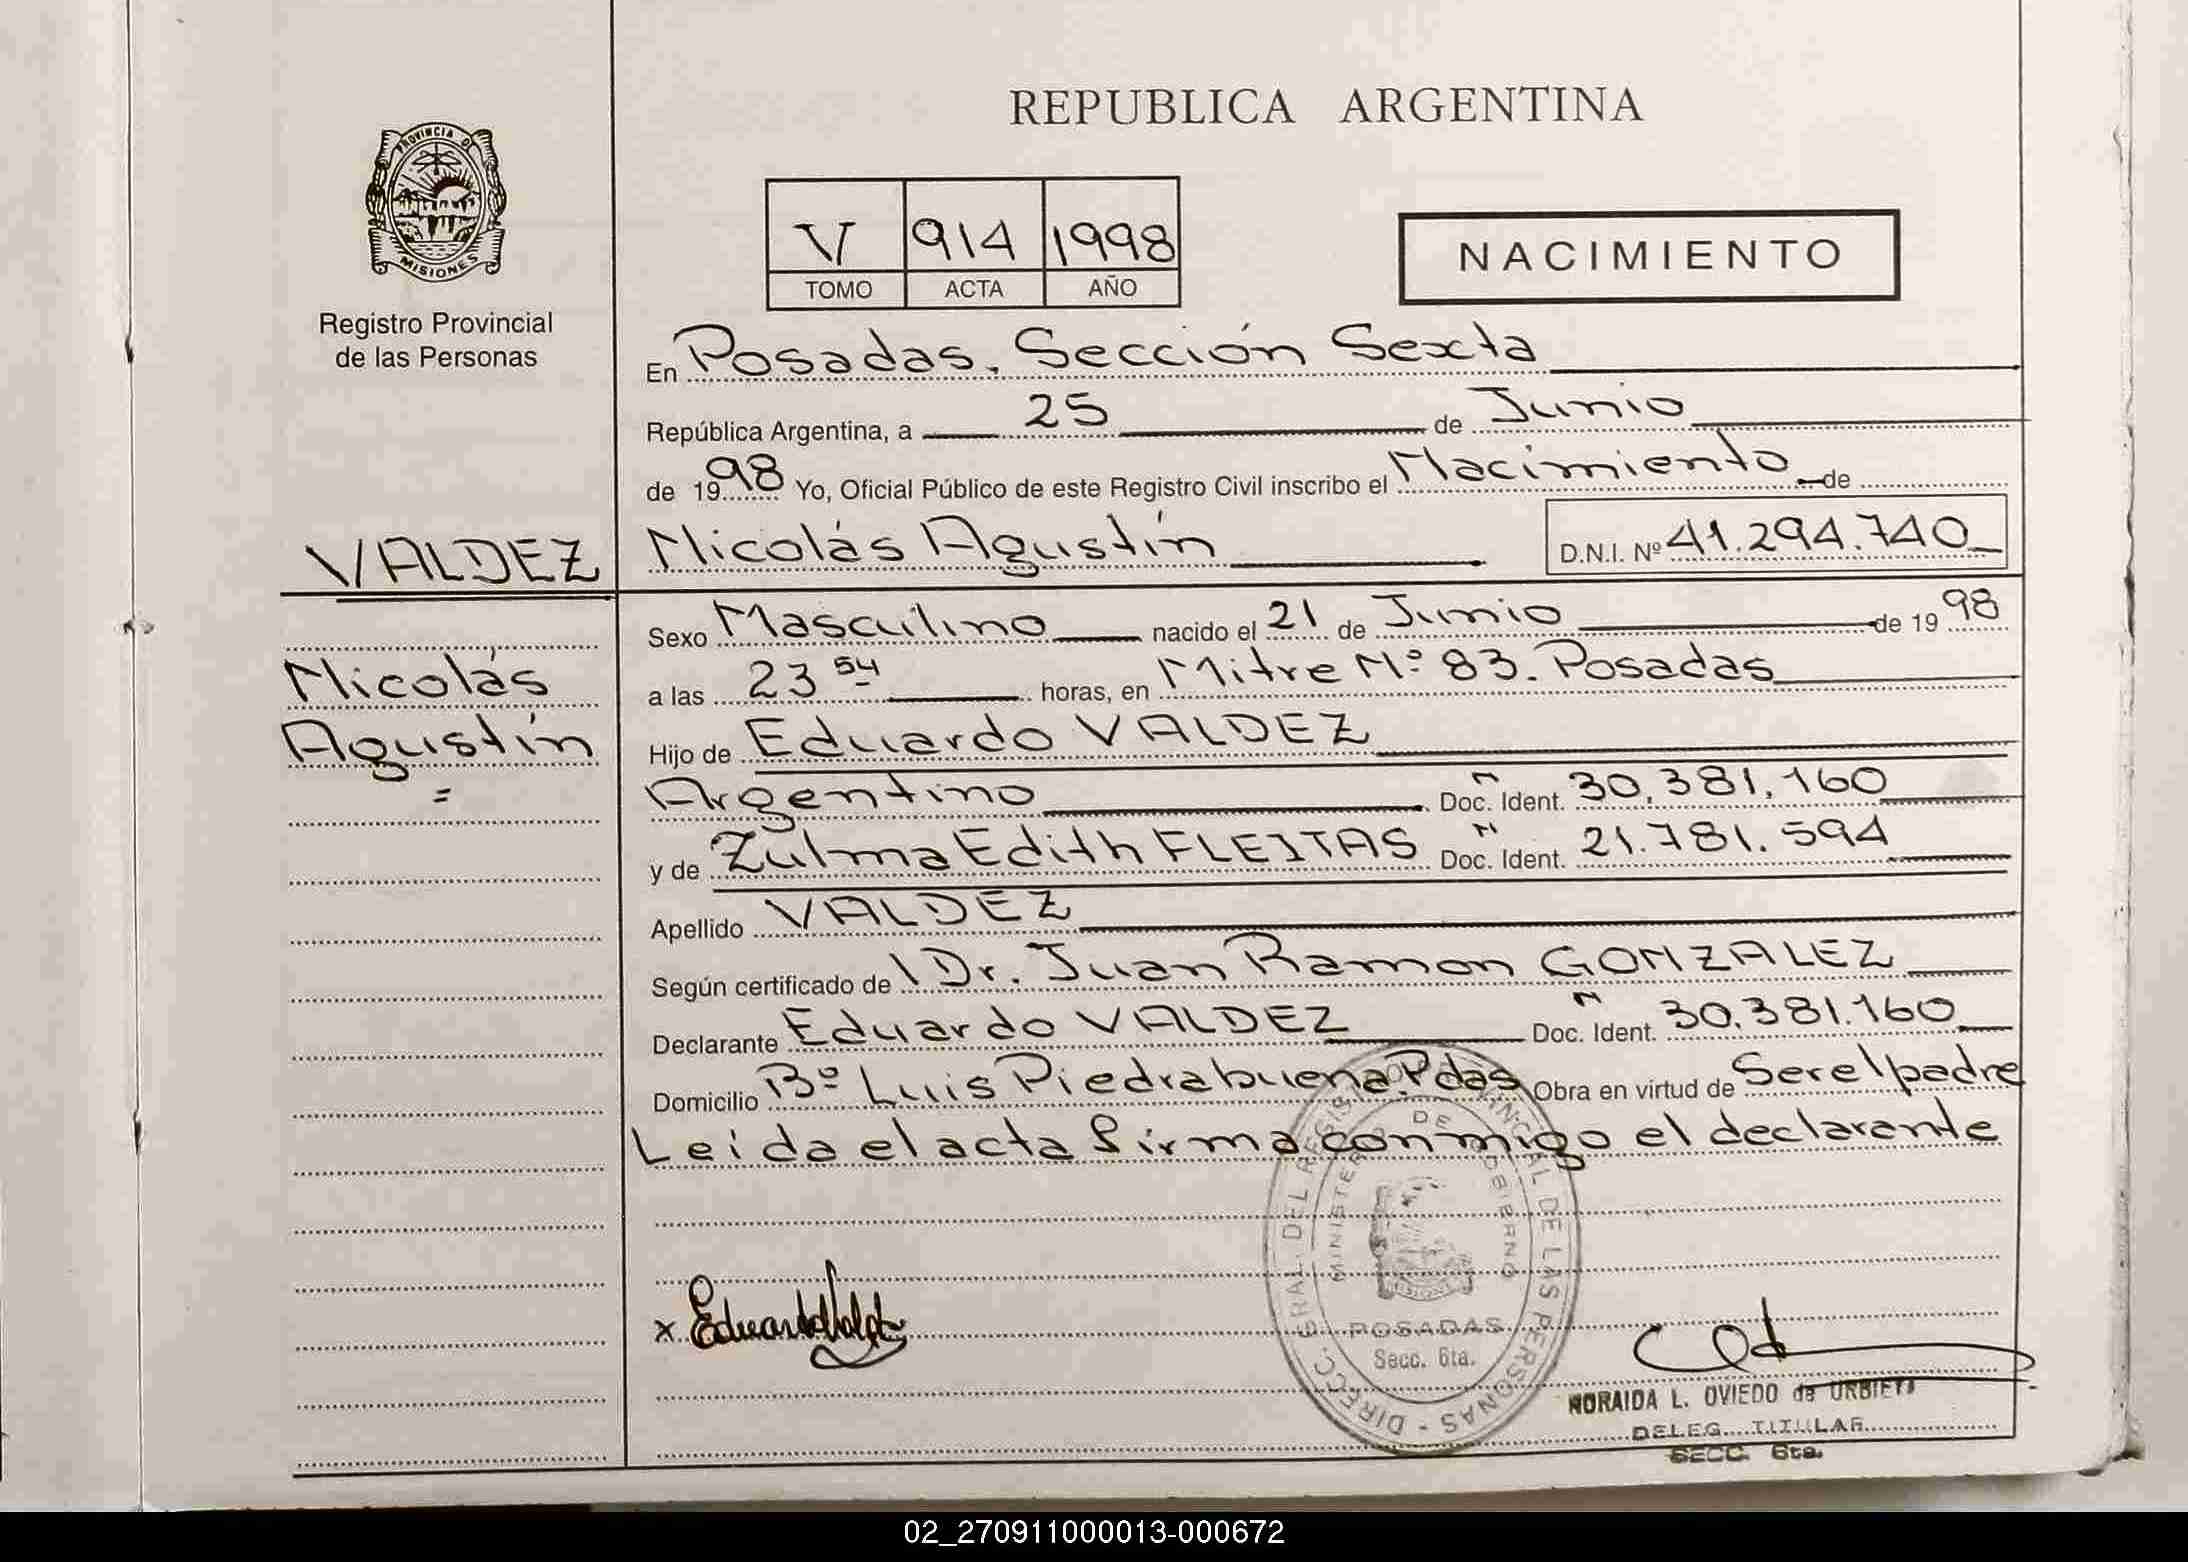 REPUBLICA ARGENTINA
PROVINCIA DE
MISIONES
Registro Provincial
de las Personas
V 914 1998
TOMO ACTA AÑO
NACIMIENTO
En Posadas. Sección Sexta
República Argentina, a 25 de Junio
de 1998 Yo, Oficial Público de este Registro Civil inscribo el Nacimiento de
VALDEZ
Nicolás Agustín D.N.I. Nº 41.294.740
Sexo Masculino nacido el 21 de Junio de 1998
Nicolás
Agustín
=
a las 23 54 horas, en Mitre Nº 83. Posadas
Hijo de Eduardo VALDEZ
Argentino Doc. Ident. N 30.381.160
y de Zulma Edith FLEITAS Doc. Ident. N 21.781.594
Apellido VALDEZ
Según certificado de Dr. Juan Ramon GONZALEZ
Declarante Eduardo VALDEZ Doc. Ident. N 30.381.160
Domicilio Bº Luis Piedrabuena. Pdas Obra en virtud de Ser el padre
Leída el acta firma conmigo el declarante
DIRECC. GRAL. DEL REGISTRO PROVINCIAL DE LAS PERSONAS -
MINISTERIO DE GOBIERNO
POSADAS
Secc. 6ta.
x Eduardo Valdez
NORAIDA L. OVIEDO de URBIETA
DELEG. TITULAR
SECC. 6ta.
02_270911000013-000672